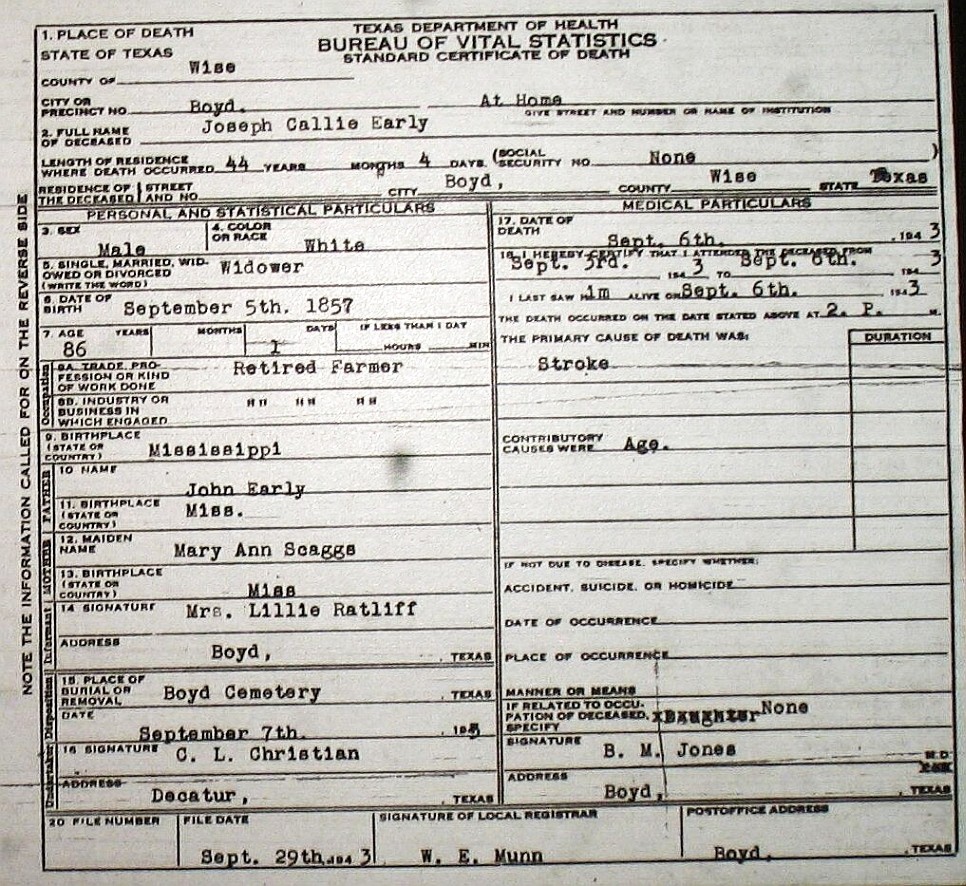 TEXAS DEPARTMENT OF HEALTH
BUREAU OF VITAL STATISTICS
STANDARD CERTIFICATE OF DEATH
1. PLACE OF DEATH
STATE OF TEXAS
COUNTY OF Wise
CITY OR PRECINCT NO. Boyd. At Home
GIVE STREET AND NUMBER OR NAME OF INSTITUTION
2. FULL NAME OF DECEASED Joseph Callie Early
LENGTH OF RESIDENCE WHERE DEATH OCCURRED 44 YEARS MONTHS 4 DAYS. (SOCIAL SECURITY NO. None )
RESIDENCE OF THE DECEASED STREET AND NO. CITY Boyd, COUNTY Wise STATE Texas
NOTE THE INFORMATION CALLED FOR ON THE REVERSE SIDE
PERSONAL AND STATISTICAL PARTICULARS
3. SEX Male
4. COLOR OR RACE White
5. SINGLE, MARRIED, WIDOWED OR DIVORCED (WRITE THE WORD) Widower
6. DATE OF BIRTH September 5th. 1857
7. AGE YEARS MONTHS DAYS IF LESS THAN 1 DAY
86 1 HOURS MIN
Occupation
8A. TRADE, PROFESSION OR KIND OF WORK DONE Retired Farmer
8B. INDUSTRY OR BUSINESS IN WHICH ENGAGED "" "" ""
9. BIRTHPLACE (STATE OR COUNTRY) Mississippi
FATHER
10 NAME John Early
11. BIRTHPLACE (STATE OR COUNTRY) Miss.
MOTHER
12. MAIDEN NAME Mary Ann Scaggs
13. BIRTHPLACE (STATE OR COUNTRY) Miss
Informant
14 SIGNATURE Mrs. Lillie Ratliff
ADDRESS Boyd, , TEXAS
Disposition
15. PLACE OF BURIAL OR REMOVAL Boyd Cemetery , TEXAS
DATE September 7th. 194
Undertaker
16 SIGNATURE C. L. Christian
ADDRESS Decatur, , TEXAS
MEDICAL PARTICULARS
17. DATE OF DEATH Sept. 6th. , 194 3
18. I HEREBY CERTIFY THAT I ATTENDED THE DECEASED FROM
Sept. 3rd. 194 3 TO Sept. 6th. 194 3
I LAST SAW him ALIVE ON Sept. 6th. 194 3
THE DEATH OCCURRED ON THE DATE STATED ABOVE AT 2. P. M.
THE PRIMARY CAUSE OF DEATH WAS: DURATION
Stroke
CONTRIBUTORY CAUSES WERE Age.
IF NOT DUE TO DISEASE, SPECIFY WHETHER:
ACCIDENT, SUICIDE, OR HOMICIDE
DATE OF OCCURRENCE
PLACE OF OCCURRENCE
MANNER OR MEANS
IF RELATED TO OCCUPATION OF DECEASED, SPECIFY None
SIGNATURE B. M. Jones M.D.
ADDRESS Boyd, , TEXAS
20 FILE NUMBER
FILE DATE Sept. 29th, 194 3
SIGNATURE OF LOCAL REGISTRAR W. E. Munn
POSTOFFICE ADDRESS Boyd, , TEXAS